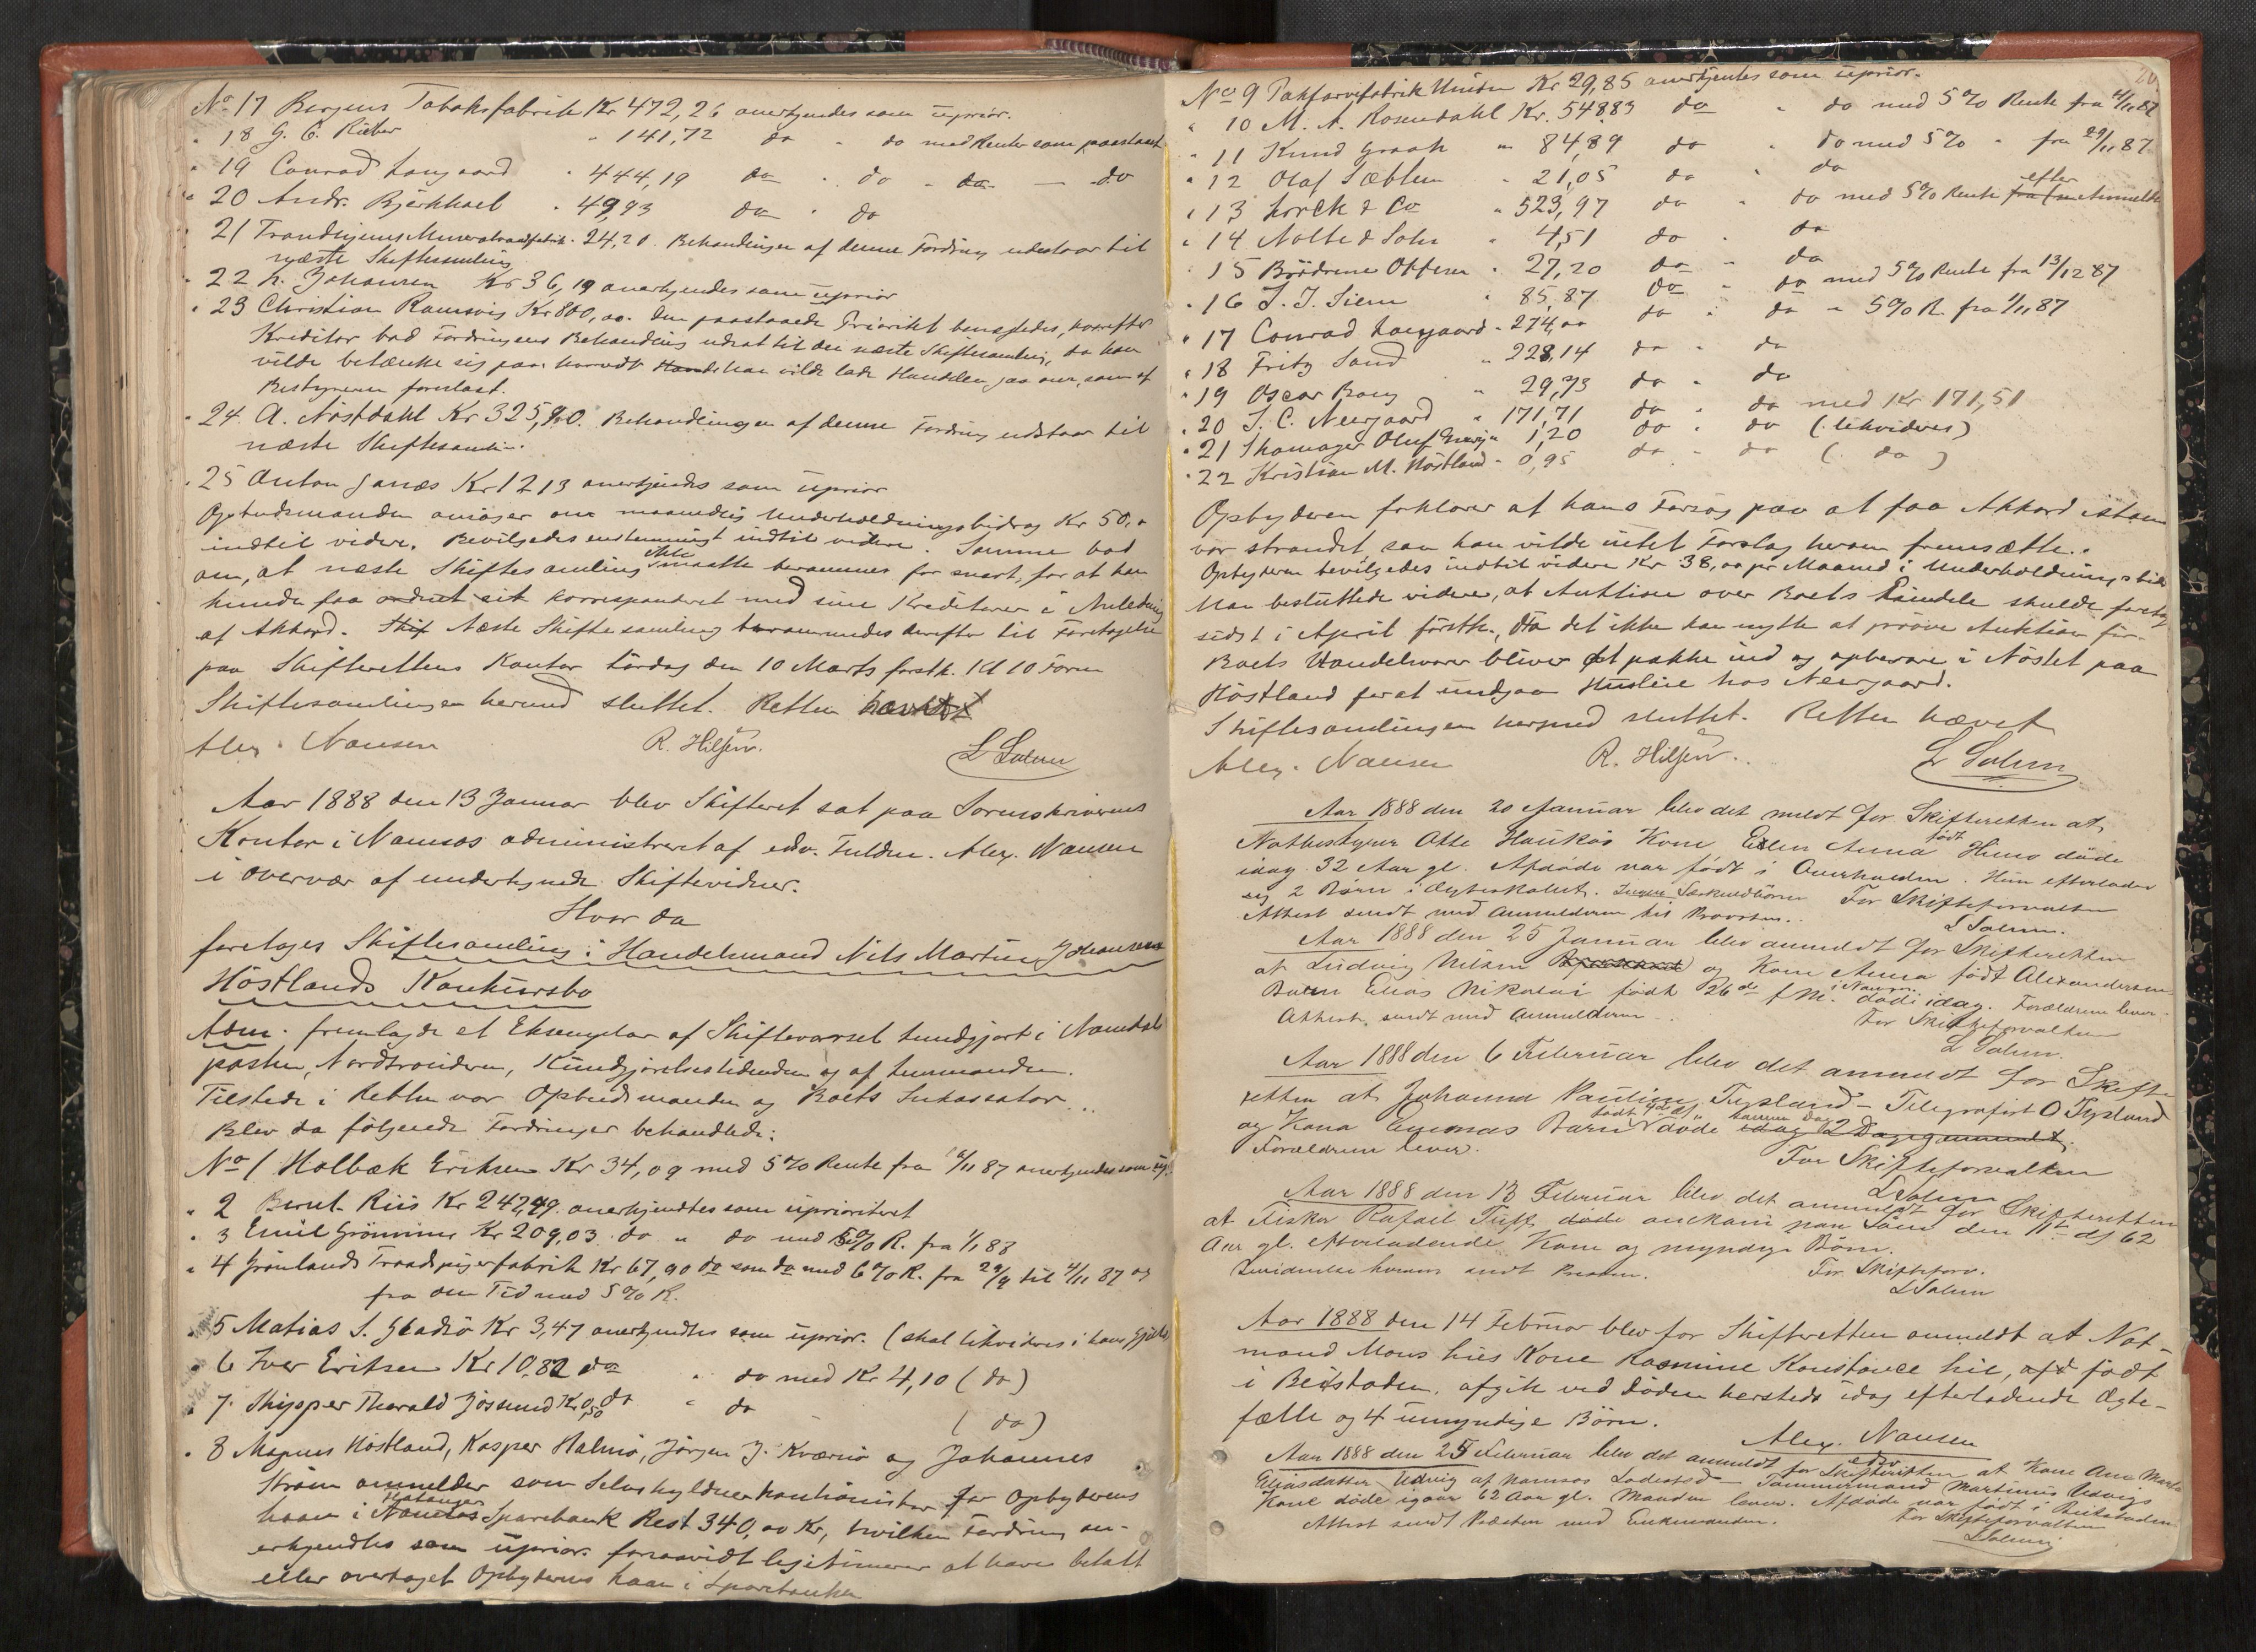 No 17 Bergens Tobaksfabrik Kr 472,26 anerkjendes som uprior.
" 18 G. C. Rieber " 141,72 do " do med Renter som paastaaet
" 19 Conrad Langaard " 444,19 do " do " do — do
" 20 Andr. Bjerkhoel " 49,93 do " do
" 21 Trondhjems Mineralvandfabrik " 24,20. Behandlingen af denne Fordring udstaar til
næste Skiftesamling
" 22 Johansen Kr 36,19 anerkjendes som uprior
" 23 Christian Ramsvig Kr 800,00. Den paastaaede Prioritet benegtedes, hvorefter
Kreditor bad Fordringens Behandling udsat til den næste Skiftesamling, da han
vilde betænke sig paa hvorvidt han vilde lade Handelen gaa over, som af
Bestyreren forestaaet.
" 24 A. Nöstdahl Kr 325,80. Behandlingen af denne Fordring udstaar til
næste Skiftesamlin.
" 25 Anton Janæs Kr 12 13 anerkjendes som uprior
Opbudsmanden ansøger om maanedlig Underholdningsbidrag Kr 50,
indtil videre. Bevilgedes enstemmigt indtil videre. Samme bad
om, at næste Skiftesamling ikke maatte berammes for snart, for at han
kunde faa ordnet sit korrespondert med sine Kreditorer i Anledning
af Akkord. Skif Næste Skiftesamling berammedes derefter til Foretagelse
paa Skifterettens Kontor Lördag den 10 Marts förstk. Kl 10 Form
Skiftesamlingen hermed sluttet. Retten hævet
Alex. Nansen R. Hilsen. L Salem
Aar 1888 den 13 Januar blev Skifteret sat paa Sorenskriverens
Kontor i Namsos administreret af edsv. Fuldm. Alex. Nansen
i Overvær af undertegnede Skiftevidner.
Hvor da
foretoges Skiftesamling i Handelsmand Nils Martin Johansens
Höstlands Konkursbo
Adm. fremlagde et Eksemplar af Skiftevarsel kundgjort i Namdals
posten, Nordtrönderen, Kundgjörelsestidenden og af Lensmanden.
Tilstede i Retten var Opbudsmanden og Boets Inkassator...
Blev da fölgende Fordringer behandlede:
No 1 Holbæk Eriksen Kr 34,09 med 5% Rente fra 16/11 87 anerkjendes som up.
" 2 Bernt Riis Kr 242,49. anerkjendtes som uprioriteret
" 3 Emil Grönning Kr 209,03 do " do med 5% R. fra 1/1 88
" 4 Grönlands Traadspigerfabrik Kr 67,90 do som do med 6% R. fra 29/9 til 4/11 87 og
fra den Tid med 5% R.
" 5 Matias S. Gladsö Kr 3,47 anerkjendtes som uprior. (skal likvideres i hans Gjæld)
" 6 Iver Eriksen Kr 10,82 do " do med Kr 4,10 (do)
" 7 Skipper Thorald Jössund Kr 0,50 do " do (do)
" 8 Magnus Höstland, Kasper Halmö, Jörgen J. Kværnö og Johannes
Ström anmelder som Selvskyldnerkautionister for Opbyderens
Laan i Namsos Sparebank Rest 340,00 Kr, hvilken Fordring an-
erkjendtes som uprior. forsaavidt legitimerer at have betalt
eller overtaget Opbyderens Laan i Sparebanken
20.
No 9 Pakfarvefabrik Union Kr 29,85 anerkjendtes som uprior.
" 10 M. A. Rosendahl Kr. 548,83 do " do med 5% Rente fra 4/11 87
" 11 Knud Graah " 84,89 do " do med 5% " fra 29/11 87
" 12 Olaf Sæther " 21,05 do " do
" 13 Lorck & Co " 523,97 do " do med 5% Rente efter Anmeldt
" 14 Nolte & Sohn " 4,51 do " do
" 15 Brödrene Ottesen " 27,20 do " do
" 16 J. J. Siem " 85,87 do " do med 5% Rente fra 13/12 87
" 17 Conrad Langaard " 274,00 do " do " 5% R. fra 1/11 87
" 18 Fritz Sand " 228,14 do " do
" 19 Oscar Bang " 29,73 do " do
" 20 J. C. Neergaard " 171,71 do " do med Kr 171,51
" 21 Skomager Oluf 1,20 do " do (likvideres)
" 22 Kristian M. Höstland " 0,95 do " do (do)
Opbyderen forklarer at hans Forsög paa at faa Akkord istand
var strandet saa han vilde intet Forslag herom fremsætte.
Opbyderen bevilgedes indtil videre Kr 38,00 pr Maaned i Underholdningsbid
Man besluttede videre, at Auktion over Boets Eiendele skulde foretag
sidst i April förstk., da det ikke kan nytte at pröve Auktion för.
Boets Handelsvarer bliver at pakke ind og opbevare i Nöstet paa
Höstland for at undgaa Husleie hos Neergaard.
Skiftesamlingen hermed sluttet. Retten hævet
Alex. Nansen R. Hilsen. L Salem
Aar 1888 den 20 Januar blev det meldt for Skifteretten at
Notbestyrer Otto Haukös Kone Ellen Anna född Himo döde
idag 32 Aar gl. Afdöde var född i Overhalden. Hun efterlader
sig 2 Börn i Ægteskabet. Ingen Særkuldbörn For Skifteforvalteren
Attest sendt med Anmelderen til Provsten. L Salem.
Aar 1888 den 25 Januar blev anmeldt for Skifteretten
at Ludvig Nilsen og Kone Anna född Alexandersens
Barn Elias Nikolai född 26de f M. i Namsos döde idag. Forældrene lever.
Attest sendt med Anmelderen. For Skifteforvalteren
L Salem.
Aar 1888 den 6 Februar blev det anmeldt for Skifte
retten at Johanna Pauline Tysland – Telegrafist O Tysland
og Kona Barn döde samme Dag 2 Dage gammelt.
Forældrene lever. For Skifteforvalteren
L Salem
Aar 1888 den 13 Februar blev det anmeldt for Skifteretten
at Fisker Rafael döde omkom paa Söen den 11te ds 62
Aar gl. efterladende Kone og myndige Börn.
herom sendt Presten. For Skifteforv.
L Salem
Aar 1888 den 14 Februar blev for Skifteretten anmeldt at Not-
mand Mons Lies Kone Rasmine Konstance Lie, född
i Beitstaden, afgik ved Döden herstedt idag efterladende Ægte-
fælle og 4 umyndige Börn.
Alex. Nansen
edsv
Aar 1888 den 25 Februar blev det anmeldt for Skifteretten at Kone Ane Marta
Eliasdatter Udvig af Namsos Ladested – Tømmermand Martinus Udvigs
Kone döde igaar 62 Aar gl. Manden lever. Afdöde var född i Beitstaden
Attest sendt Præsten med Enkemanden. For Skifteforvalteren
L Salem